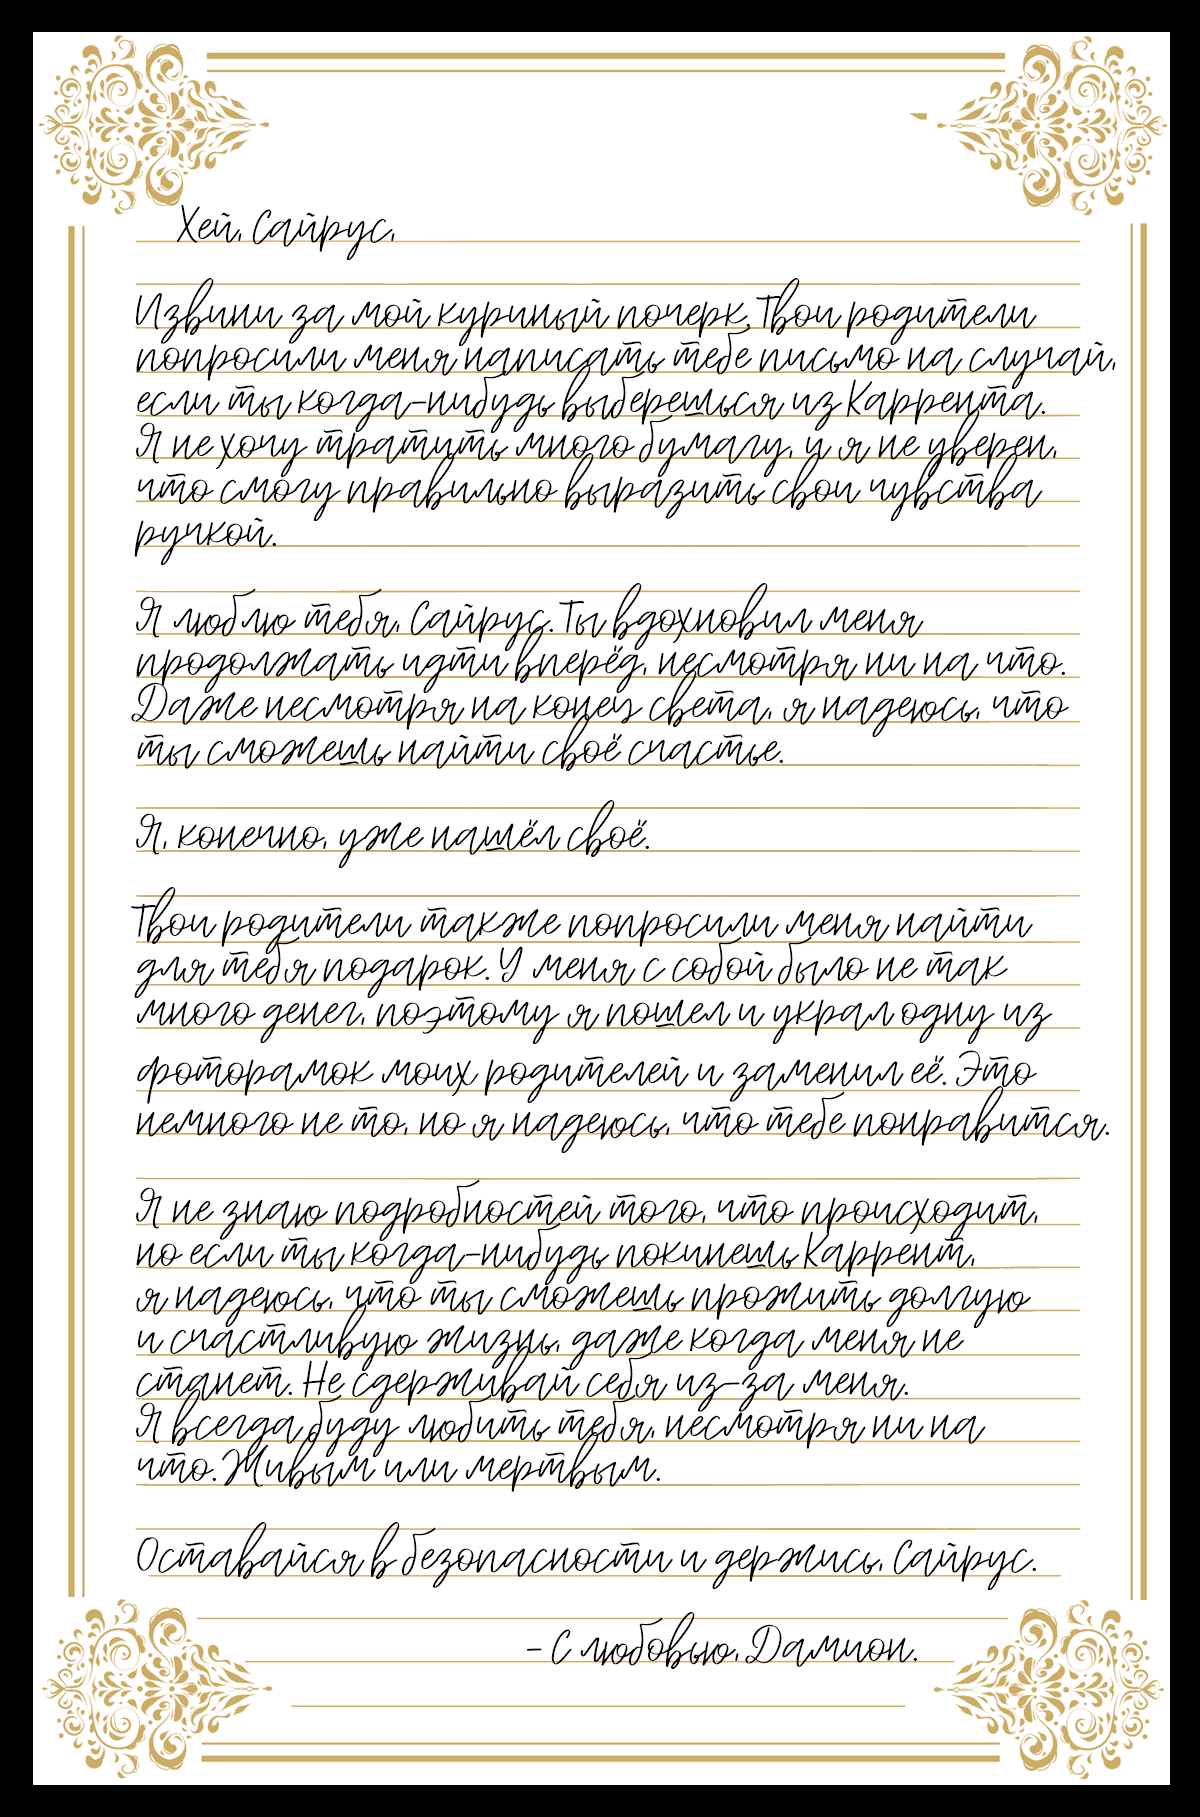 Хей, Сайрус,
Извини за мой куриный почерк. Твои родители
попросили меня написать тебе письмо на случай,
если ты когда-нибудь выберешься из Каррента.
Я не хочу тратуть много бумагу, и я не уверен,
что смогу правильно выразить свои чувства
ручкой.
Я люблю тебя, Сайрус. Ты вдохновил меня
продолжать идти вперёд, несмотря ни на что.
Даже несмотря на конец света, я надеюсь, что
ты сможешь найти своё счастье.
Я, конечно, уже нашёл своё.
Твои родители также попросили меня найти
для тебя подарок. У меня с собой было не так
много денег, поэтому я пошел и украл одну из
фоторамок моих родителей и заменил её. Это
немного не то, но я надеюсь, что тебе понравится.
Я не знаю подробностей того, что происходит,
но если ты когда-нибудь покинешь Каррент,
я надеюсь, что ты сможешь прожить долгую
и счастливую жизнь, даже когда меня не
станет. Не сдерживай себя из-за меня.
Я всегда буду любить тебя, несмотря ни на
что. Живым или мертвым.
Оставайся в безопасности и держись, Сайрус.
- С любовью, Дамион.